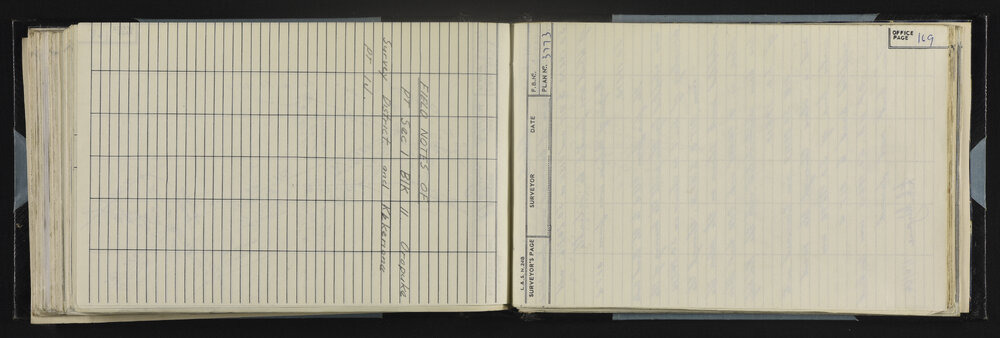 FIELD NOTES OF
PT Sec 1 Blk 11 Orapuke
Survey District and
Pt
L. & S. N. 240
SURVEYOR'S PAGE
SURVEYOR
DATE
F. B. No.
PLAN No. 3773
OFFICE PAGE 169